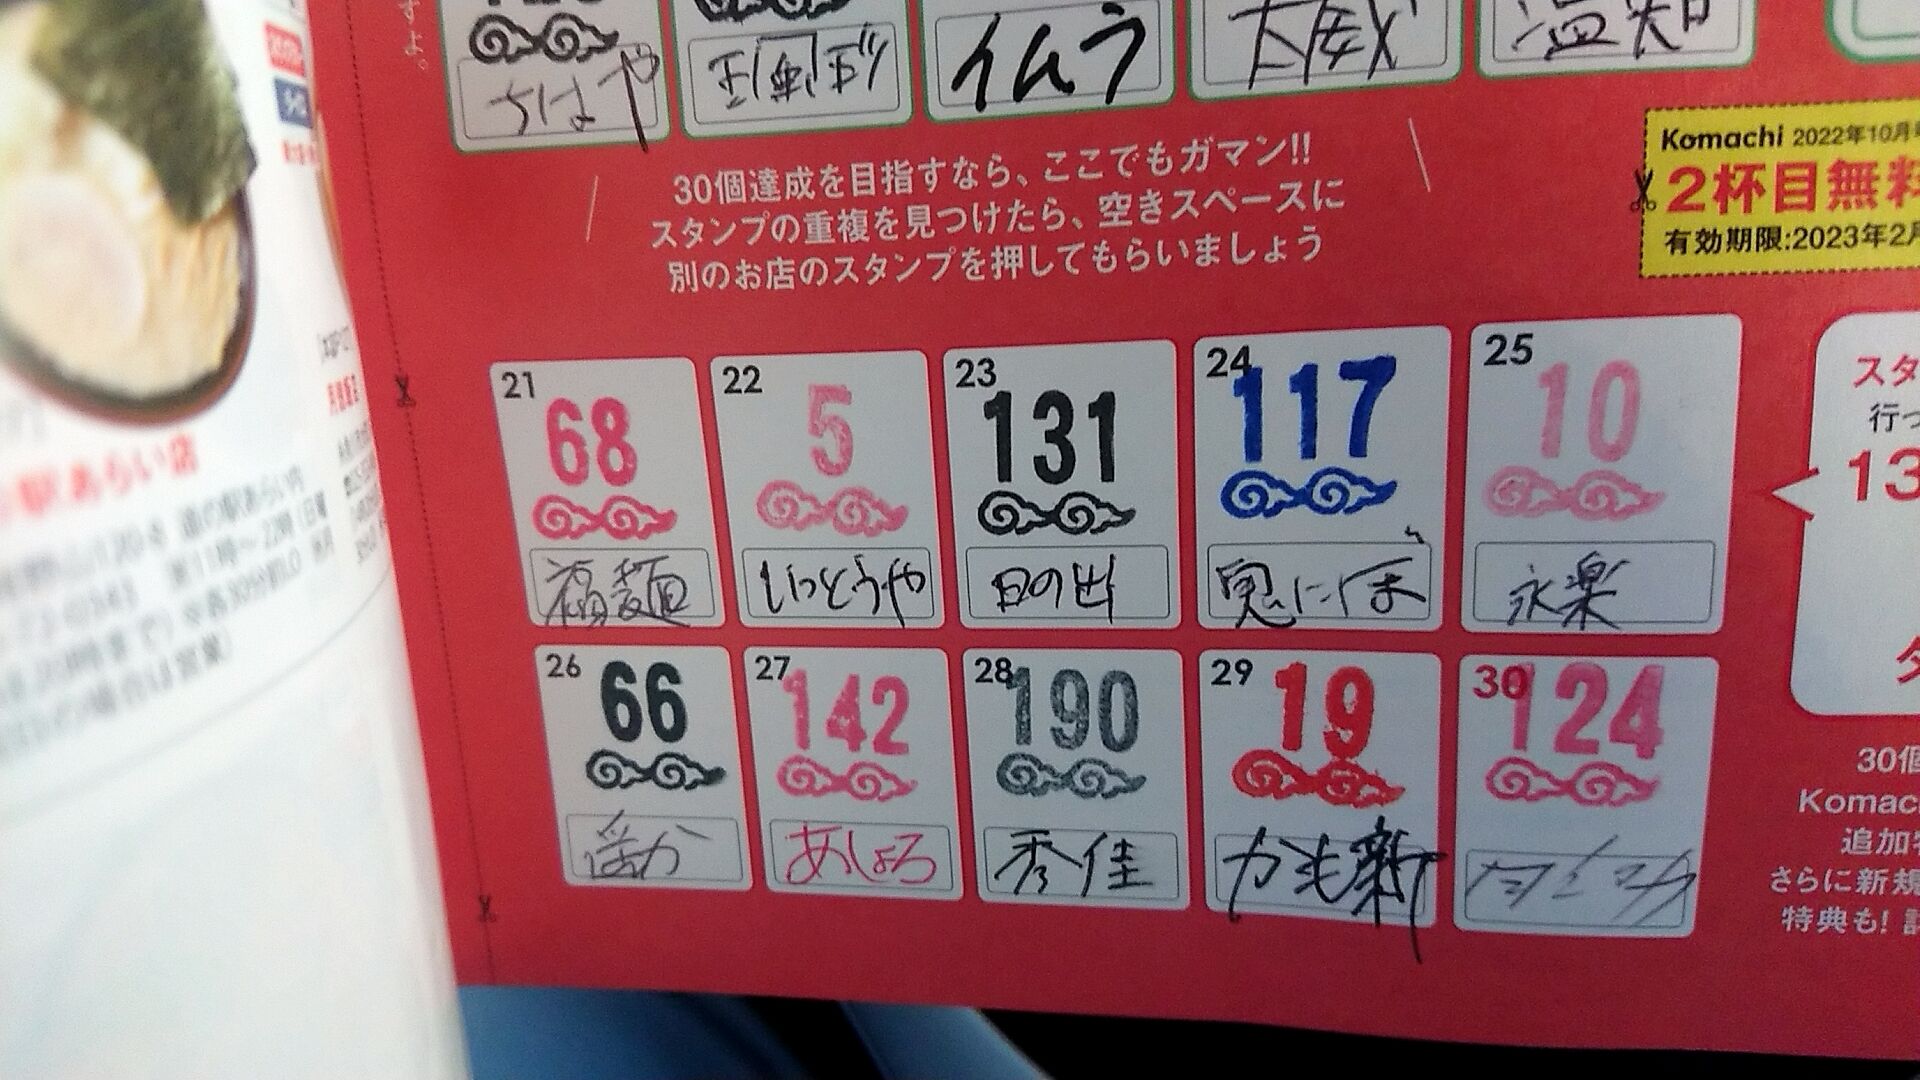 すよ。
ちはや
イムラ
太威
温知
30個達成を目指すなら、ここでもガマン!!
スタンプの重複を見つけたら、空きスペースに
別のお店のスタンプを押してもらいましょう
Komachi 2022年10月
2杯目無料
有効期限:2023年2月
21 68 福麺
22 5 いっとうや
23 131 日の出
24 117 鬼にぼ
25 10 永楽
26 66
27 142 あしょろ
28 190 秀佳
29 19 かも新
30 124
スタ
行っ
13
タ
30個
Komac
追加
さらに新規
特典も!
駅あらい店